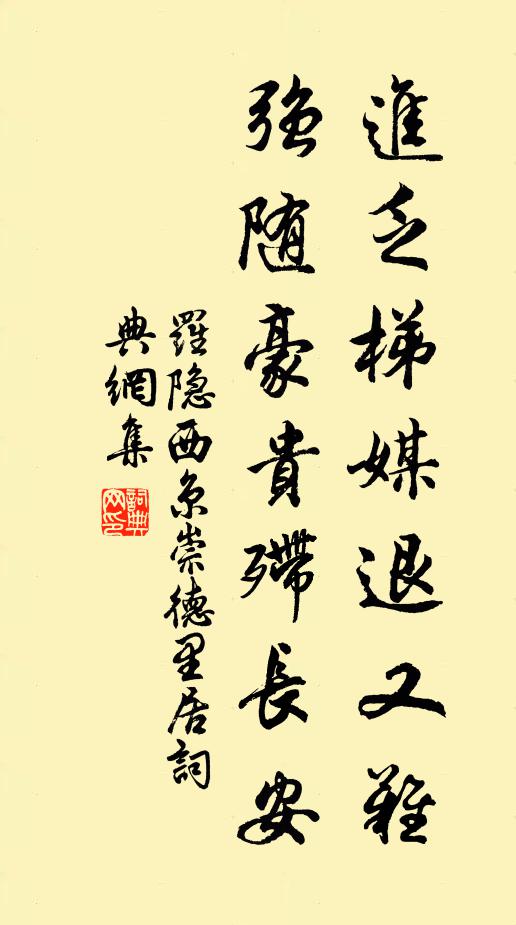 進乏梯媒退又難
强随豪貴殢長安
羅隐西京崇德里居詞
典網集
詞典
网印